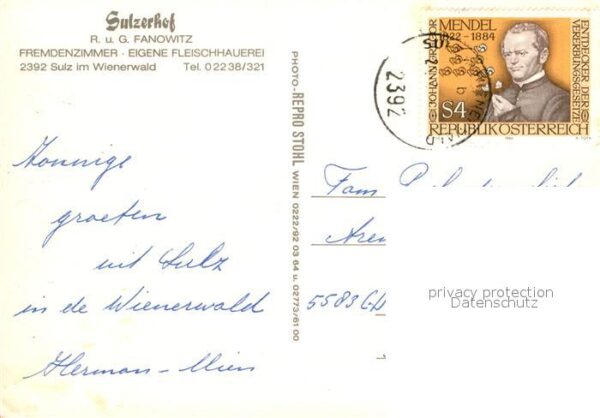 Sulzerhof
R. u. G. FANOWITZ
FREMDENZIMMER · EIGENE FLEISCHHAUEREI
2392 Sulz im Wienerwald Tel. 0 22 38/321
Zonnige
groeten
uit Sulz
in de Wienerwald
Herman - Mien
PHOTO-REPRO STOHL WIEN 0222/92 03 64 u. 02773/61 00
JOHANN GREGOR MENDEL
1822 - 1884
ENTDECKER DER VERERBUNGSGESETZE
S4
REPUBLIK ÖSTERREICH
2392
Fam
5583
privacy protection
Datenschutz